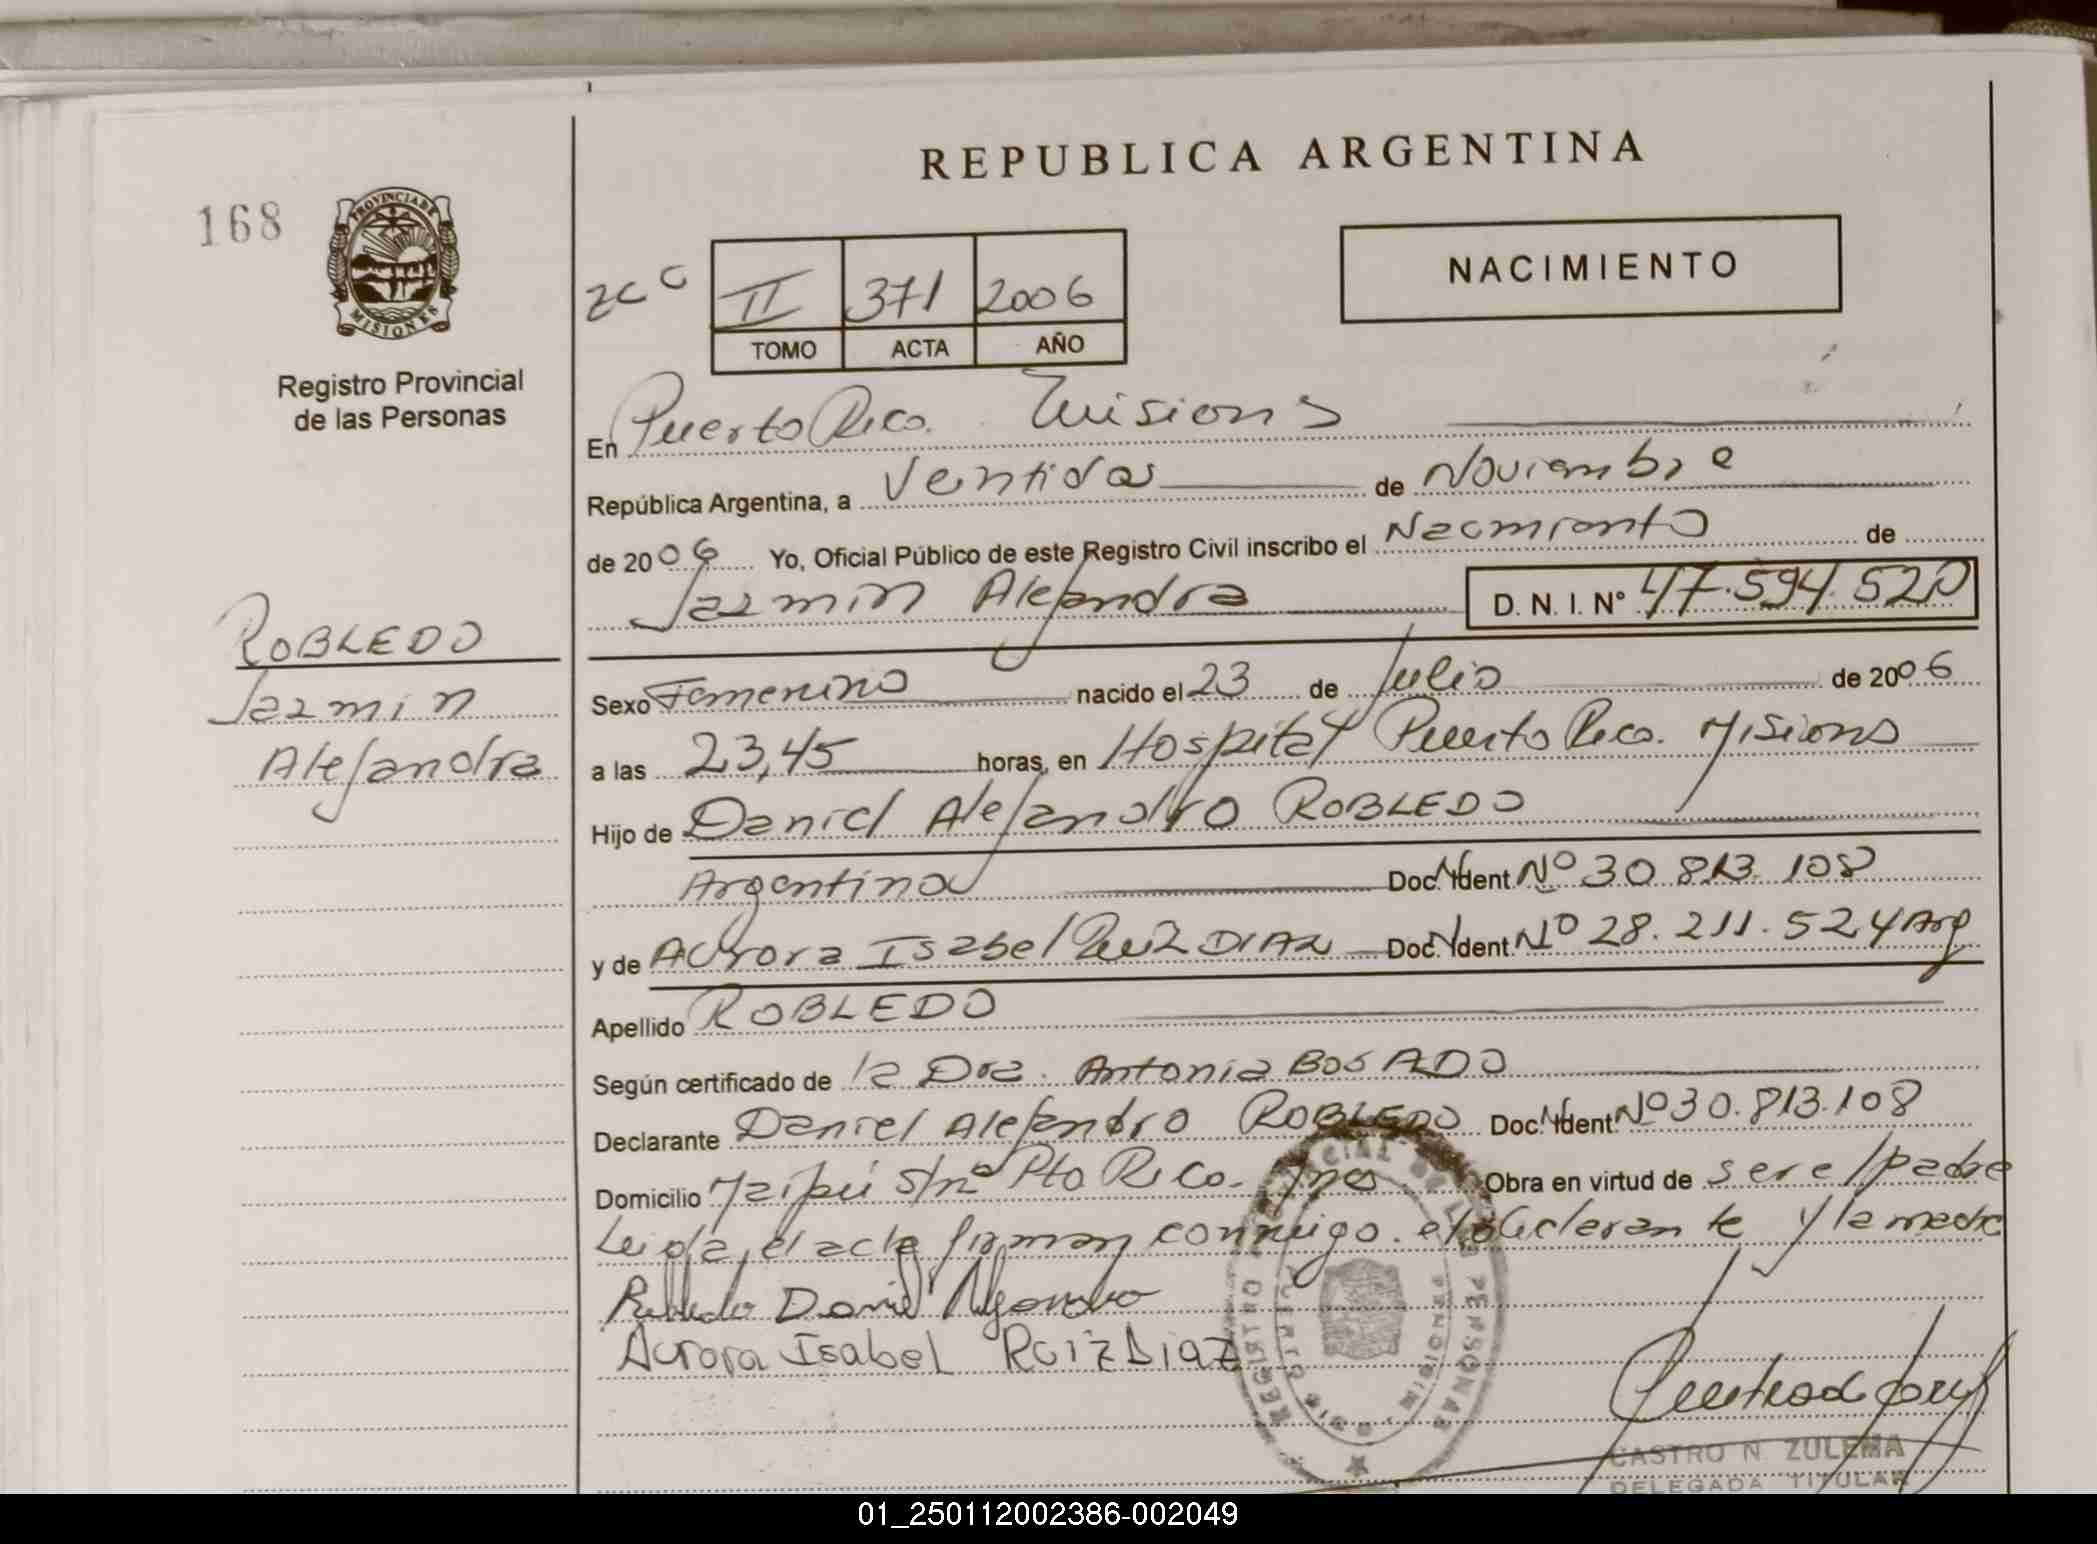 REPUBLICA ARGENTINA
168
PROVINCIA DE
MISIONES
Registro Provincial
de las Personas
NACIMIENTO
II 371 2006
TOMO ACTA AÑO
En Puerto Rico. Misiones
República Argentina, a Ventidos de Noviembre
de 2006 Yo, Oficial Público de este Registro Civil inscribo el Nacmiento de
Jazmin Alejandra D. N. I. Nº 47.594.520
ROBLEDO
Jazmin
Alejandra
Sexo Femenino nacido el 23 de Julio de 2006
a las 23,45 horas, en Hospital Puerto Rico. Misiones
Hijo de Daniel Alejandro ROBLEDO
Argentina Doc. Ident. Nº 30.813.108
y de Aurora Isabel Ruiz DIAZ Doc. Ident. Nº 28.211.524 Arg
Apellido ROBLEDO
Según certificado de la Dra. Antonia BOSADO
Declarante Daniel Alejandro ROBLEDO Doc. Ident. Nº 30.813.108
Domicilio Maipú s/nº Pto Rico. Mnes Obra en virtud de ser el padre
Leida el acta firman conmigo. el declarante y la madre
Robledo Daniel Alejandro
Aurora Isabel Ruiz Diaz
REGISTRO PERSONAS
PUERTO RICO
CASTRO N. ZULEMA
DELEGADA TITULAR
01_250112002386-002049